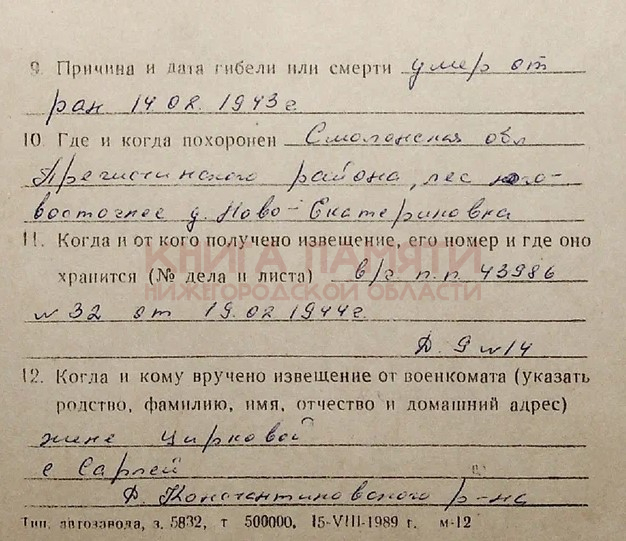 9. Причина и дата гибели или смерти умер от
ран 14.08.1943 г
10. Где и когда похоронен Смоленская обл
Пречистинского района, лес юго-
восточнее д. Ново-Екатериновка
11. Когда и от кого получено извещение, его номер и где оно
КНИГА ПАМЯТИ
хранится (№ дела и листа) в/ч п.п. 43986
НИЖЕГОРОДСКОЙ ОБЛАСТИ
№ 32 от 19.02.1944 г.
Д. 9 № 14
12. Когда и кому вручено извещение от военкомата (указать
родство, фамилию, имя, отчество и домашний адрес)
жене Цирковой
с Сарлей
Д. Константиновского р-на
Тип. автозавода, з. 5832, т 500000, 15-VIII-1989 г. м-12